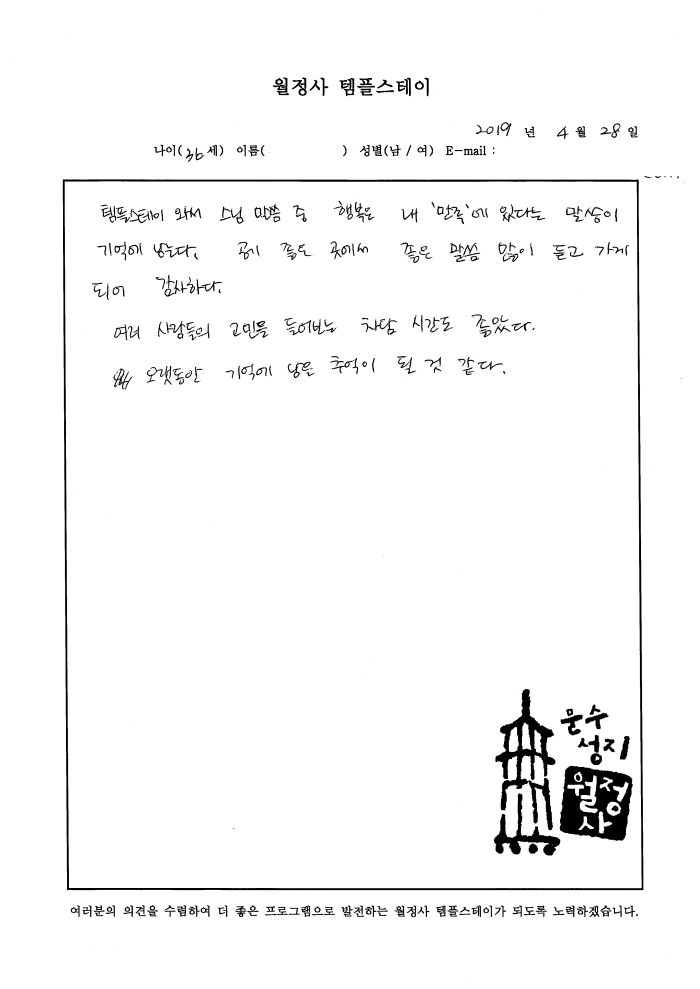 월정사 템플스테이
2019 년 4 월 28 일
나이(36세) 이름( ) 성별(남 / 여) E-mail :
템플스테이 와서 스님 말씀 중 행복은 내 '만족'에 있다는 말씀이
기억에 남는다. 공기 좋은 곳에서 좋은 말씀 많이 듣고 가게
되어 감사하다.
여러 사람들의 고민을 들어보는 차담 시간도 좋았다.
오랫동안 기억에 남을 추억이 될 것 같다.
문수
성지
월정
사
여러분의 의견을 수렴하여 더 좋은 프로그램으로 발전하는 월정사 템플스테이가 되도록 노력하겠습니다.